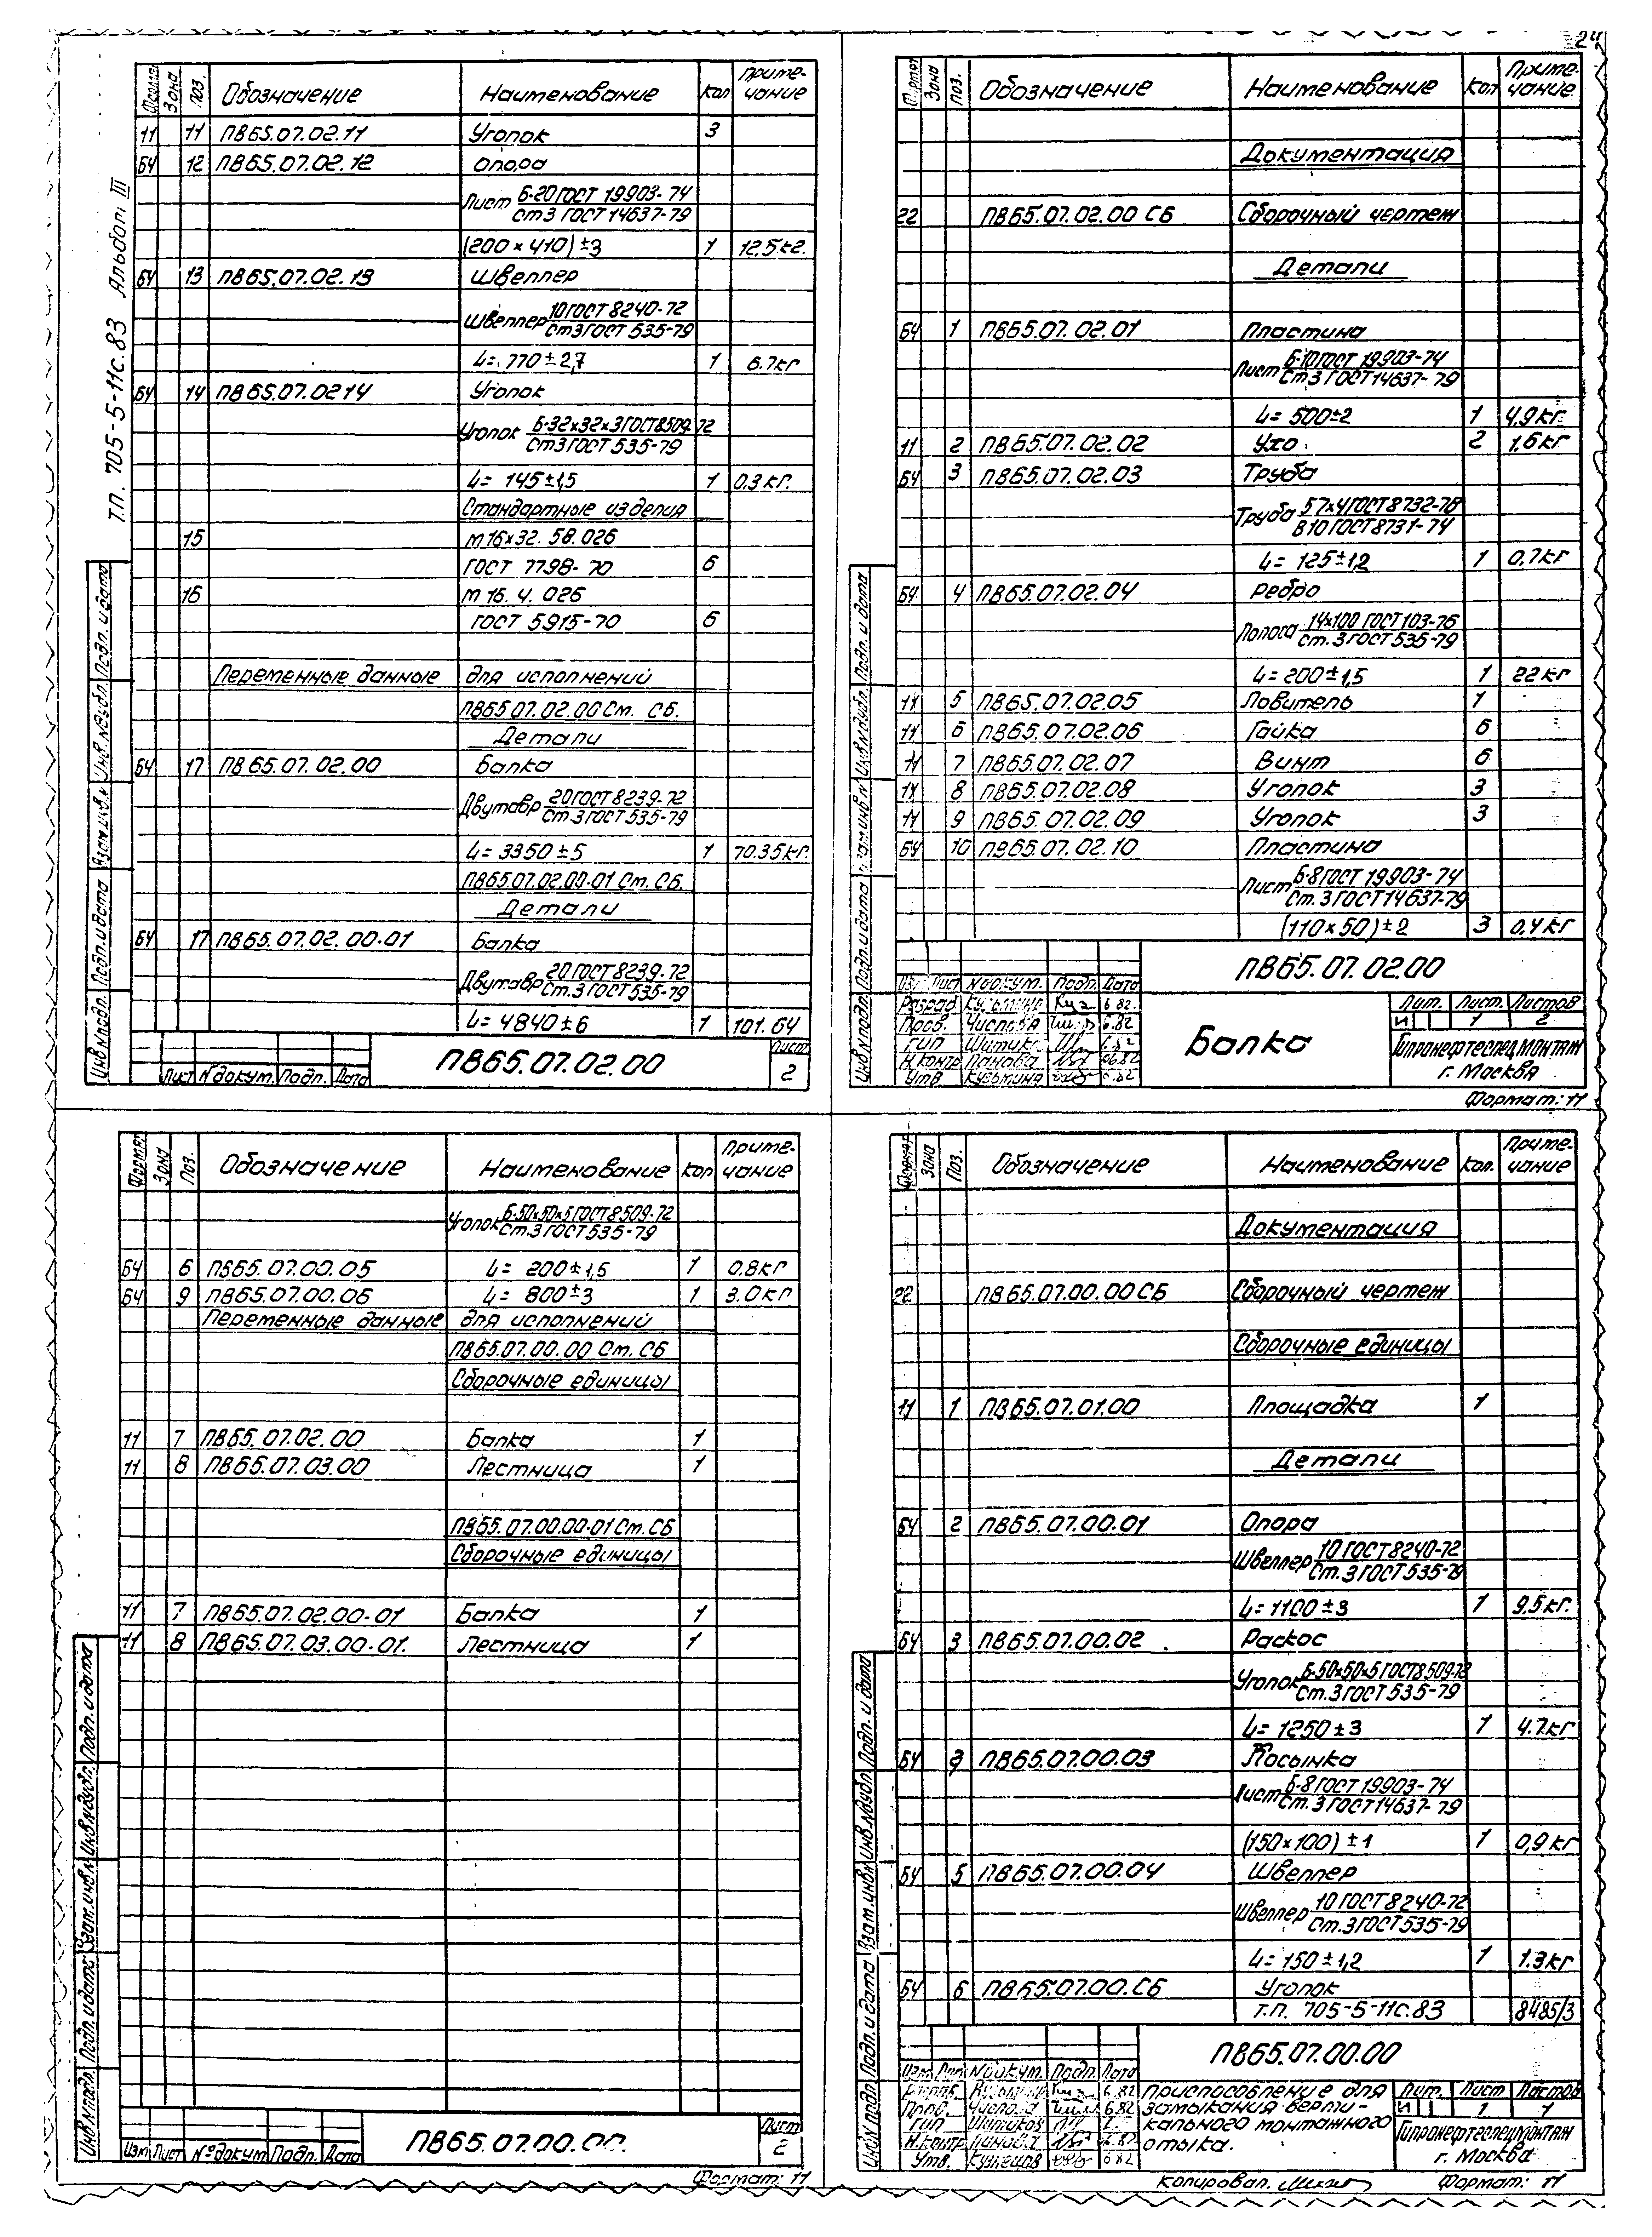 24
Т.П. 705-5-11с.83 Альбом III
Формат Зона Поз. Обозначение Наименование Кол Приме-чание
11 11 ПВ65.07.02.11 Уголок 3
БЧ 12 ПВ65.07.02.12 Опора
Лист Б-20 ГОСТ 19903-74
Ст3 ГОСТ 14637-79
(200×410)±3 1 12.5кг.
БЧ 13 ПВ65.07.02.13 Швеллер
Швеллер 10 ГОСТ 8240-72
Ст3 ГОСТ 535-79
L=770±2,7 1 6.7кг
БЧ 14 ПВ65.07.0214 Уголок
Уголок Б-32×32×3 ГОСТ 8509-72
Ст3 ГОСТ 535-79
L= 145±1,5 1 0.3кг.
Стандартные изделия
15 М16×32.58.026
ГОСТ 7798-70 6
16 М16.4.026
ГОСТ 5915-70 6
Переменные данные для исполнений
ПВ65.07.02.00 См. СБ.
Детали
БЧ 17 ПВ65.07.02.00 Балка
Двутавр 20 ГОСТ 8239-72
Ст.3 ГОСТ 535-79
L=3350±5 1 70.35кг.
ПВ65.07.02.00-01 См. СБ.
Детали
БЧ 17 ПВ65.07.02.00-01 Балка
Двутавр 20 ГОСТ 8239-72
Ст.3 ГОСТ 535-79
L=4840±6 1 101.64
Лист № докум. Подп. Дата
ПВ65.07.02.00
Лист 2
Инв.№подл. Подп. и дата Взам.инв.№ Инв.№дубл. Подп. и дата
Формат Зона Поз. Обозначение Наименование Кол Приме-чание
Документация
22 ПВ65.07.02.00 СБ Сборочный чертеж
Детали
БЧ 1 ПВ65.07.02.01 Пластина
Лист Б-10 ГОСТ 19903-74
Ст.3 ГОСТ 14637-79
L=500±2 1 4,9кг
11 2 ПВ65.07.02.02 Ухо 2 1,6кг
БЧ 3 ПВ65.07.02.03 Труба
Труба 57×4 ГОСТ 8732-78
В10 ГОСТ 8731-74
L=125±1,2 1 0,7кг
БЧ 4 ПВ65.07.02.04 Ребро
Полоса 14×100 ГОСТ 103-76
Ст.3 ГОСТ 535-79
L=200±1,5 1 22кг
11 5 ПВ65.07.02.05 Ловитель 1
11 6 ПВ65.07.02.06 Гайка 6
11 7 ПВ65.07.02.07 Винт 6
11 8 ПВ65.07.02.08 Уголок 3
11 9 ПВ65.07.02.09 Уголок 3
БЧ 10 ПВ65.07.02.10 Пластина
Лист Б-8 ГОСТ 19903-74
Ст.3 ГОСТ 14637-79
(110×50)±2 3 0,4кг
ПВ65.07.02.00
Изм. Лист № докум. Подп. Дата
Разраб. 6.82.
Пров. 6.82
ГИП
Н.контр Панова 06.82
Утв Кузьмина 6.82
Балка
Лит. Лист. Листов
И 1 2
Гипронефтеспецмонтаж
г. Москва
Формат: 11
Инв.№подл. Подп. и дата Взам.инв.№ Инв.№дубл. Подп. и дата
Формат Зона Поз. Обозначение Наименование Кол Приме-чание
Уголок Б-50×50×5 ГОСТ 8509-72
Ст.3 ГОСТ 535-79
БЧ 6 ПВ65.07.00.05 L= 200±1,5 1 0.8кг
БЧ 9 ПВ65.07.00.06 L= 800±3 1 3.0кг
Переменные данные для исполнений
ПВ65.07.00.00 См. СБ
Сборочные единицы
11 7 ПВ65.07.02.00 Балка 1
11 8 ПВ65.07.03.00 Лестница 1
ПВ65.07.00.00-01 См. СБ
Сборочные единицы
11 7 ПВ65.07.02.00-01 Балка 1
11 8 ПВ65.07.03.00-01. Лестница 1
Изм Лист № докум Подп. Дата
ПВ65.07.00.00.
Лист 2
Формат: 11
Инв.№подл. Подп. и дата Взам.инв.№ Инв.№дубл. Подп. и дата
Формат Зона Поз. Обозначение Наименование Кол. Приме-чание
Документация
22 ПВ65.07.00.00 СБ Сборочный чертеж
Сборочные единицы
11 1 ПВ65.07.01.00 Площадка 1
Детали
БЧ 2 ПВ65.07.00.01 Опора
Швеллер 10 ГОСТ 8240-72
Ст.3 ГОСТ 535-79
L=1100±3 1 9.5кг.
БЧ 3 ПВ65.07.00.02 Раскос
Уголок Б-50×50×5 ГОСТ 8509-72
Ст.3 ГОСТ 535-79
L=1250±3 1 4.7кг
БЧ ПВ65.07.00.03 Косынка
Лист Б-8 ГОСТ 19903-74
Ст.3 ГОСТ 14637-79
(150×100)±1 1 0,9кг
БЧ 5 ПВ65.07.00.04 Швеллер
Швеллер 10 ГОСТ 8240-72
Ст.3 ГОСТ 535-79
L=150±1,2 1 1.3кг
БЧ 6 ПВ65.07.00.СБ Уголок
Т.П. 705-5-11с.83 8485/3
ПВ65.07.00.00
Изм Лист № докум. Подп. Дата
Разраб. 6.82
Пров. 6.82
ГИП
Н.контр 06.82
Утв. 6.82
Приспособление для
замыкания верти-
кального монтажного
стыка.
Лит. Лист Листов
И 1 1
Гипронефтеспецмонтаж
г. Москва
Копировал.
Формат: 11
Инв.№подл. Подп. и дата Взам.инв.№ Инв.№дубл. Подп. и дата